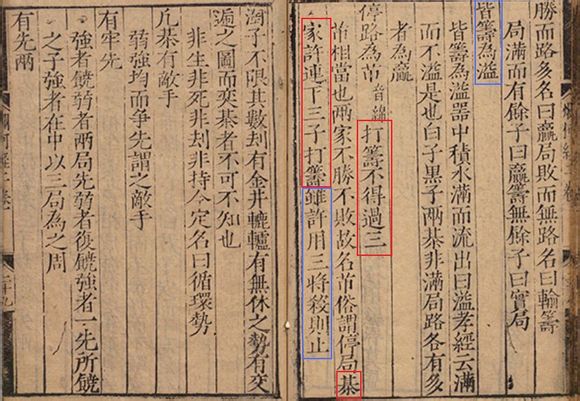 勝而路多名曰贏局敗而無路名曰輸籌
局滿而有餘子曰贏籌無餘子曰實局
皆籌為溢
皆籌為溢器中積水滿而流出曰溢孝經云滿
而不溢是也白子黑子兩棊非滿局路各有多
者為贏
停路為芇音綿打籌不得過三
芇相當也兩家不勝不敗故名芇俗謂停局棊
家許連下三子打籌雖許用三將殺則止
淘子不限其數刼有金井轆轤有無休之勢有交
遞之圖而奕棊者不可不知也
非生非死非刼非持今定名曰循環勢
凢棊有敵手
弱強均而爭先謂之敵手
有牢先
強者饒弱者兩局先弱者復饒強者一先所饒
之子強者在中以三局為之周
有先兩